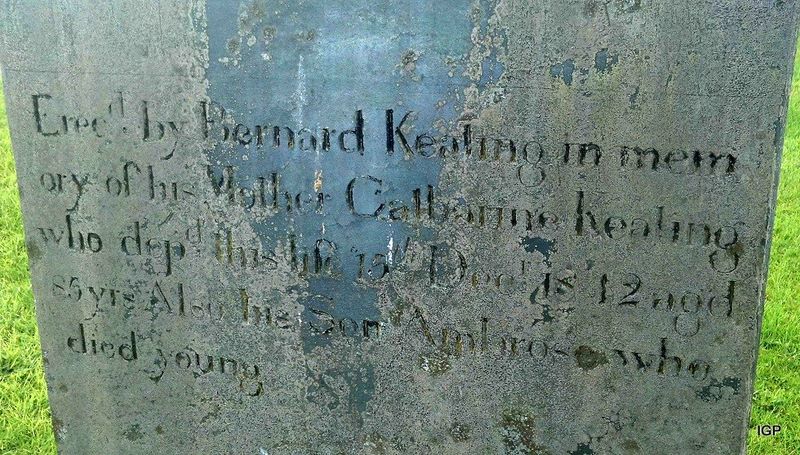 Erecd. by Bernard Keating in mem
ory of his Mother Catharine Keating
who depd. this life 15th Decr. 1812 agd
85 yrs Also his Son Ambrose who
died young
IGP